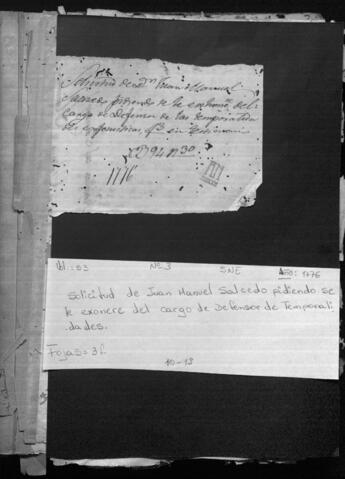 Solicitud de dn Juan Manuel
Salzedo pidiendo se le exhonere del
cargo de Defensor de las temporalida
des
1776
Vol.: 53 No. 3 SNE Año: 1776
Solicitud de Juan Manuel Salcedo pidiendo se
le exonere del cargo de Defensor de Temporali
dades.
Fojas = 3 f.
10-13